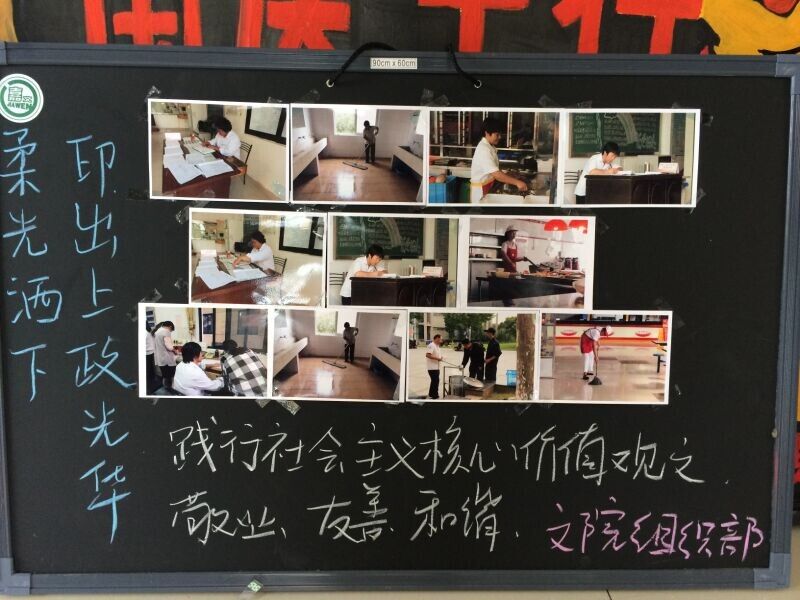 90cm x 60cm
柔光洒下
印出上政光华
践行社会主义核心价值观之
敬业、友善、和谐.
文院组织部